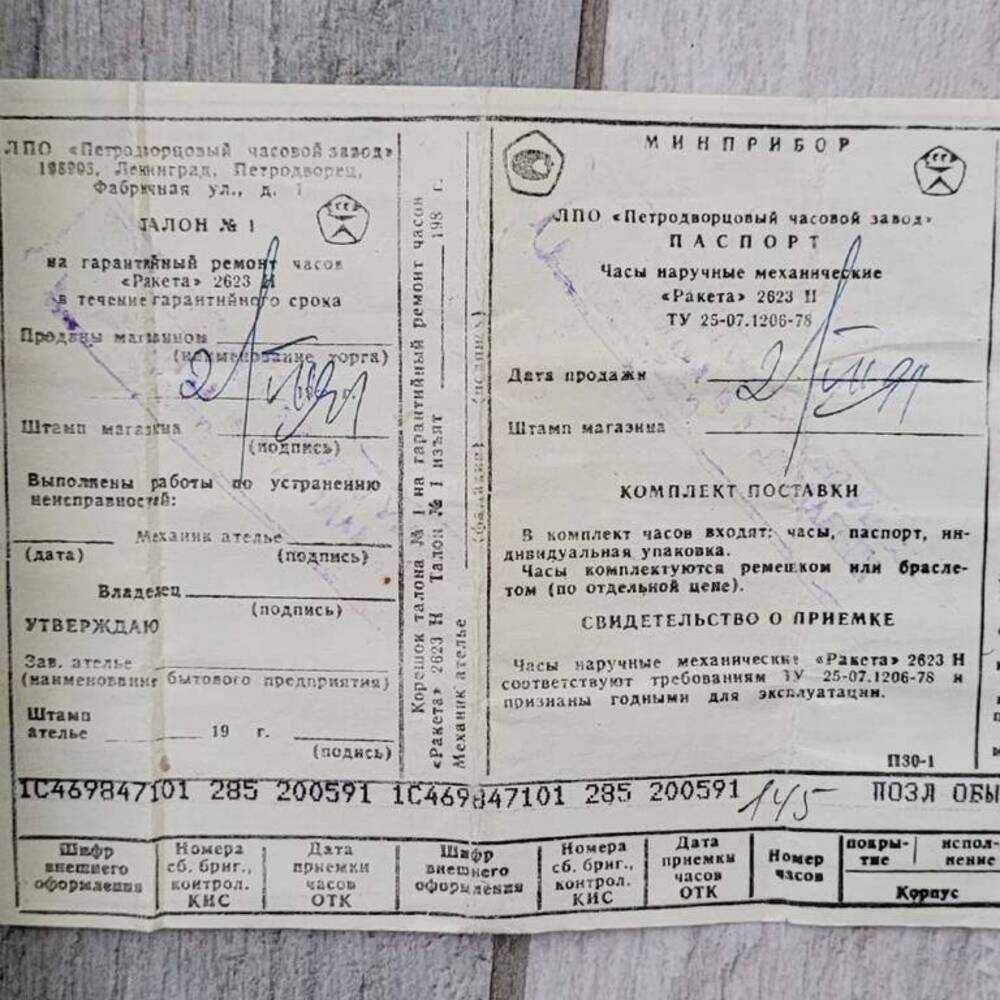 ЛПО «Петродворцовый часовой завод»
198903, Ленинград, Петродворец,
Фабричная ул., д. 1
ТАЛОН № 1
на гарантийный ремонт часов
«Ракета» 2623 Н
в течение гарантийного срока
Проданы магазином
(наименование торга)
Штамп магазина
(подпись)
Выполнены работы по устранению
неисправностей:
Механик ателье
(дата) (подпись)
Владелец
(подпись)
УТВЕРЖДАЮ
Зав. ателье
(наименование бытового предприятия)
Штамп
ателье 19 г.
(подпись)
Корешок талона № 1 на гарантийный ремонт часов
«Ракета» 2623 Н Талон № 1 изъят 198 г.
Механик ателье
(фамилия) (подпись)
МИНПРИБОР
ЛПО «Петродворцовый часовой завод»
ПАСПОРТ
Часы наручные механические
«Ракета» 2623 Н
ТУ 25-07.1206-78
Дата продажи
Штамп магазина
КОМПЛЕКТ ПОСТАВКИ
В комплект часов входят: часы, паспорт, ин-
дивидуальная упаковка.
Часы комплектуются ремешком или брасле-
том (по отдельной цене).
СВИДЕТЕЛЬСТВО О ПРИЕМКЕ
Часы наручные механические «Ракета» 2623 Н
соответствуют требованиям ТУ 25-07.1206-78 и
признаны годными для эксплуатации.
П30-1
1С469847101 285 200591 1С469847101 285 200591 145 ПОЗЛ ОБЫ
Шифр
внешнего
оформления
Номера
сб. бриг.,
контрол.
КИС
Дата
приемки
часов
ОТК
Шифр
внешнего
оформления
Номера
сб. бриг.,
контрол.
КИС
Дата
приемки
часов
ОТК
Номер
часов
покры-
тие
испол-
нение
Корпус